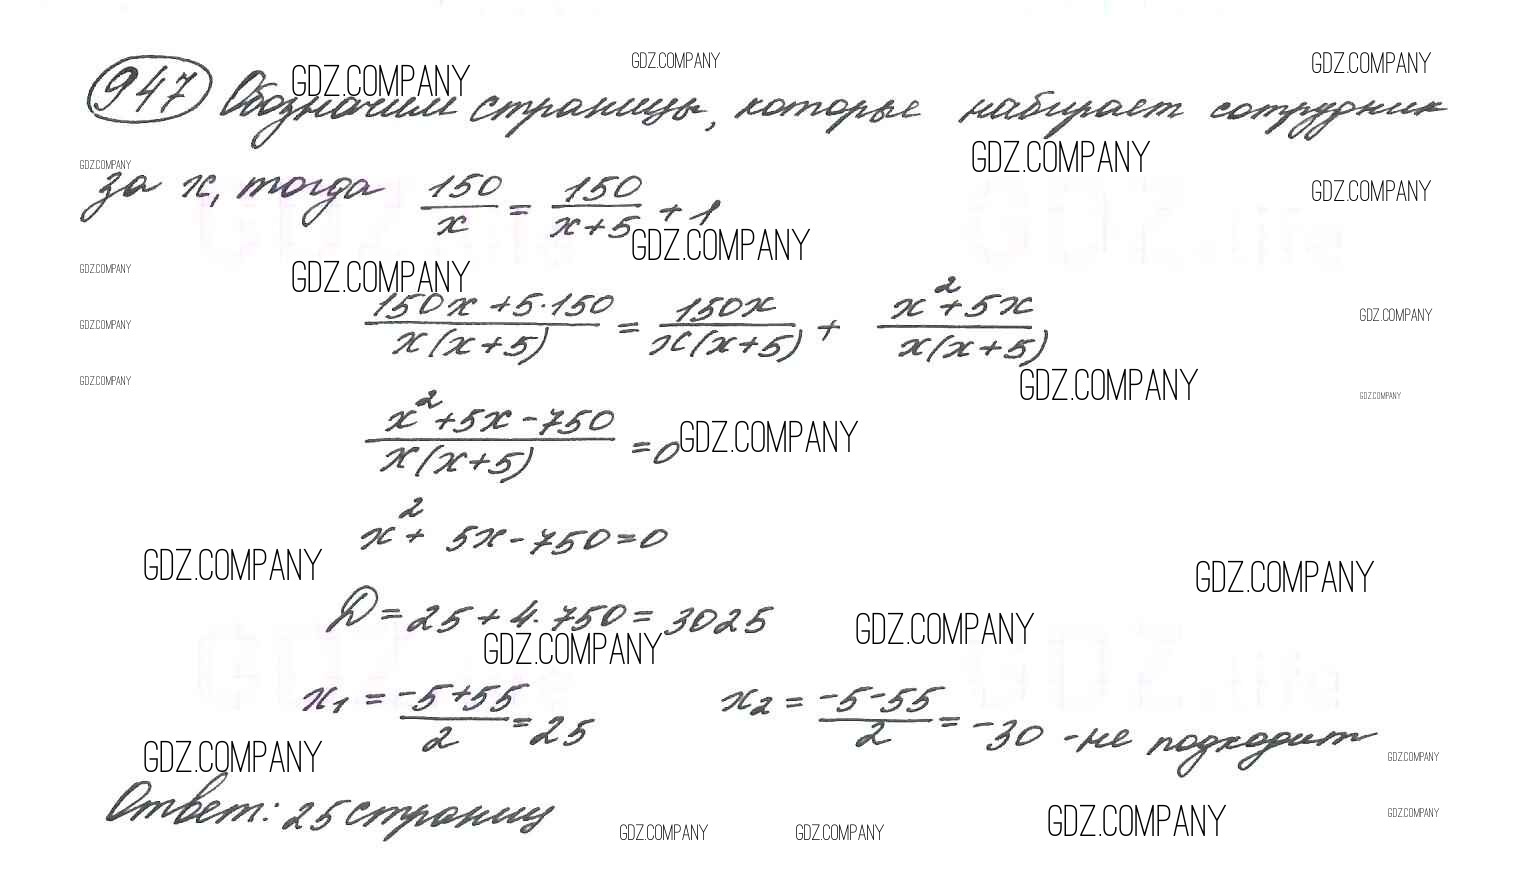 GDZ.COMPANY
GDZ.COMPANY
GDZ.COMPANY
947 Обозначим страницы, которые набирает сотрудник
GDZ.COMPANY
GDZ.COMPANY
GDZ.COMPANY
за x, тогда 150/x = 150/(x+5) + 1
GDZ.COMPANY
GDZ.COMPANY
GDZ.COMPANY
(150x+5·150)/(x(x+5)) = 150x/(x(x+5)) + (x²+5x)/(x(x+5))
GDZ.COMPANY
GDZ.COMPANY
GDZ.COMPANY
GDZ.COMPANY
GDZ.COMPANY
(x²+5x-750)/(x(x+5)) =0
GDZ.COMPANY
x²+ 5x-750=0
GDZ.COMPANY
GDZ.COMPANY
D=25+4·750=3025
GDZ.COMPANY
GDZ.COMPANY
x₁ = (-5+55)/2 =25 x₂ = (-5-55)/2 = -30 -не подходит
GDZ.COMPANY
GDZ.COMPANY
Ответ: 25 страниц
GDZ.COMPANY
GDZ.COMPANY
GDZ.COMPANY
GDZ.COMPANY